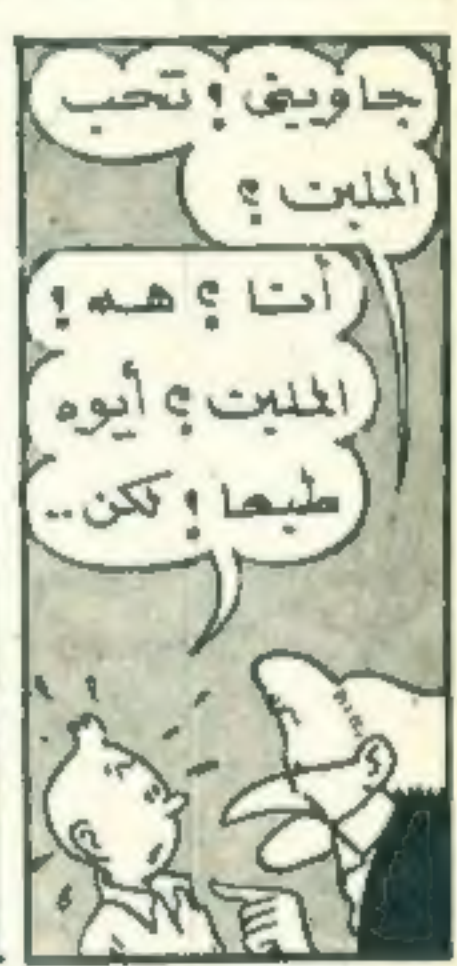 جاوبنى ! تحب
الملبن ؟
أنا ؟ هه !
الملبن ؟ أيوه
طبعا ! لكن ..